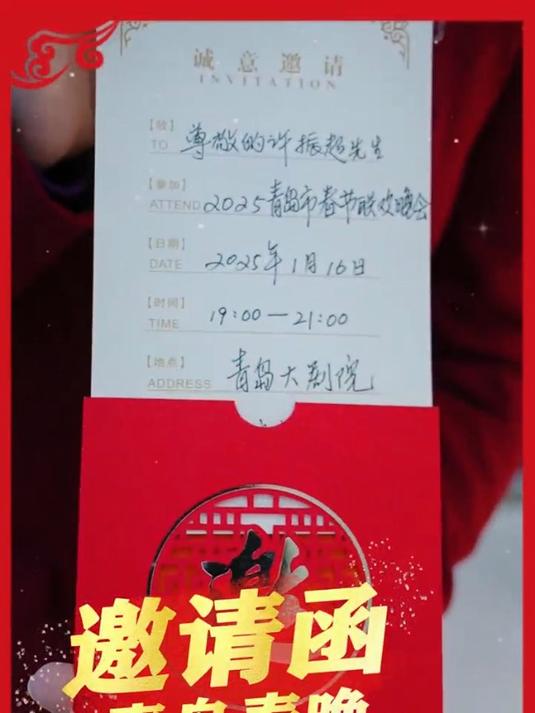 诚意邀请
INVITATION
【致】
TO 尊敬的许振超先生
【参加】
ATTEND 2025青岛市春节联欢晚会
【日期】
DATE 2025年1月16日
【时间】
TIME 19:00—21:00
【地点】
ADDRESS 青岛大剧院
邀请函
青岛春晚